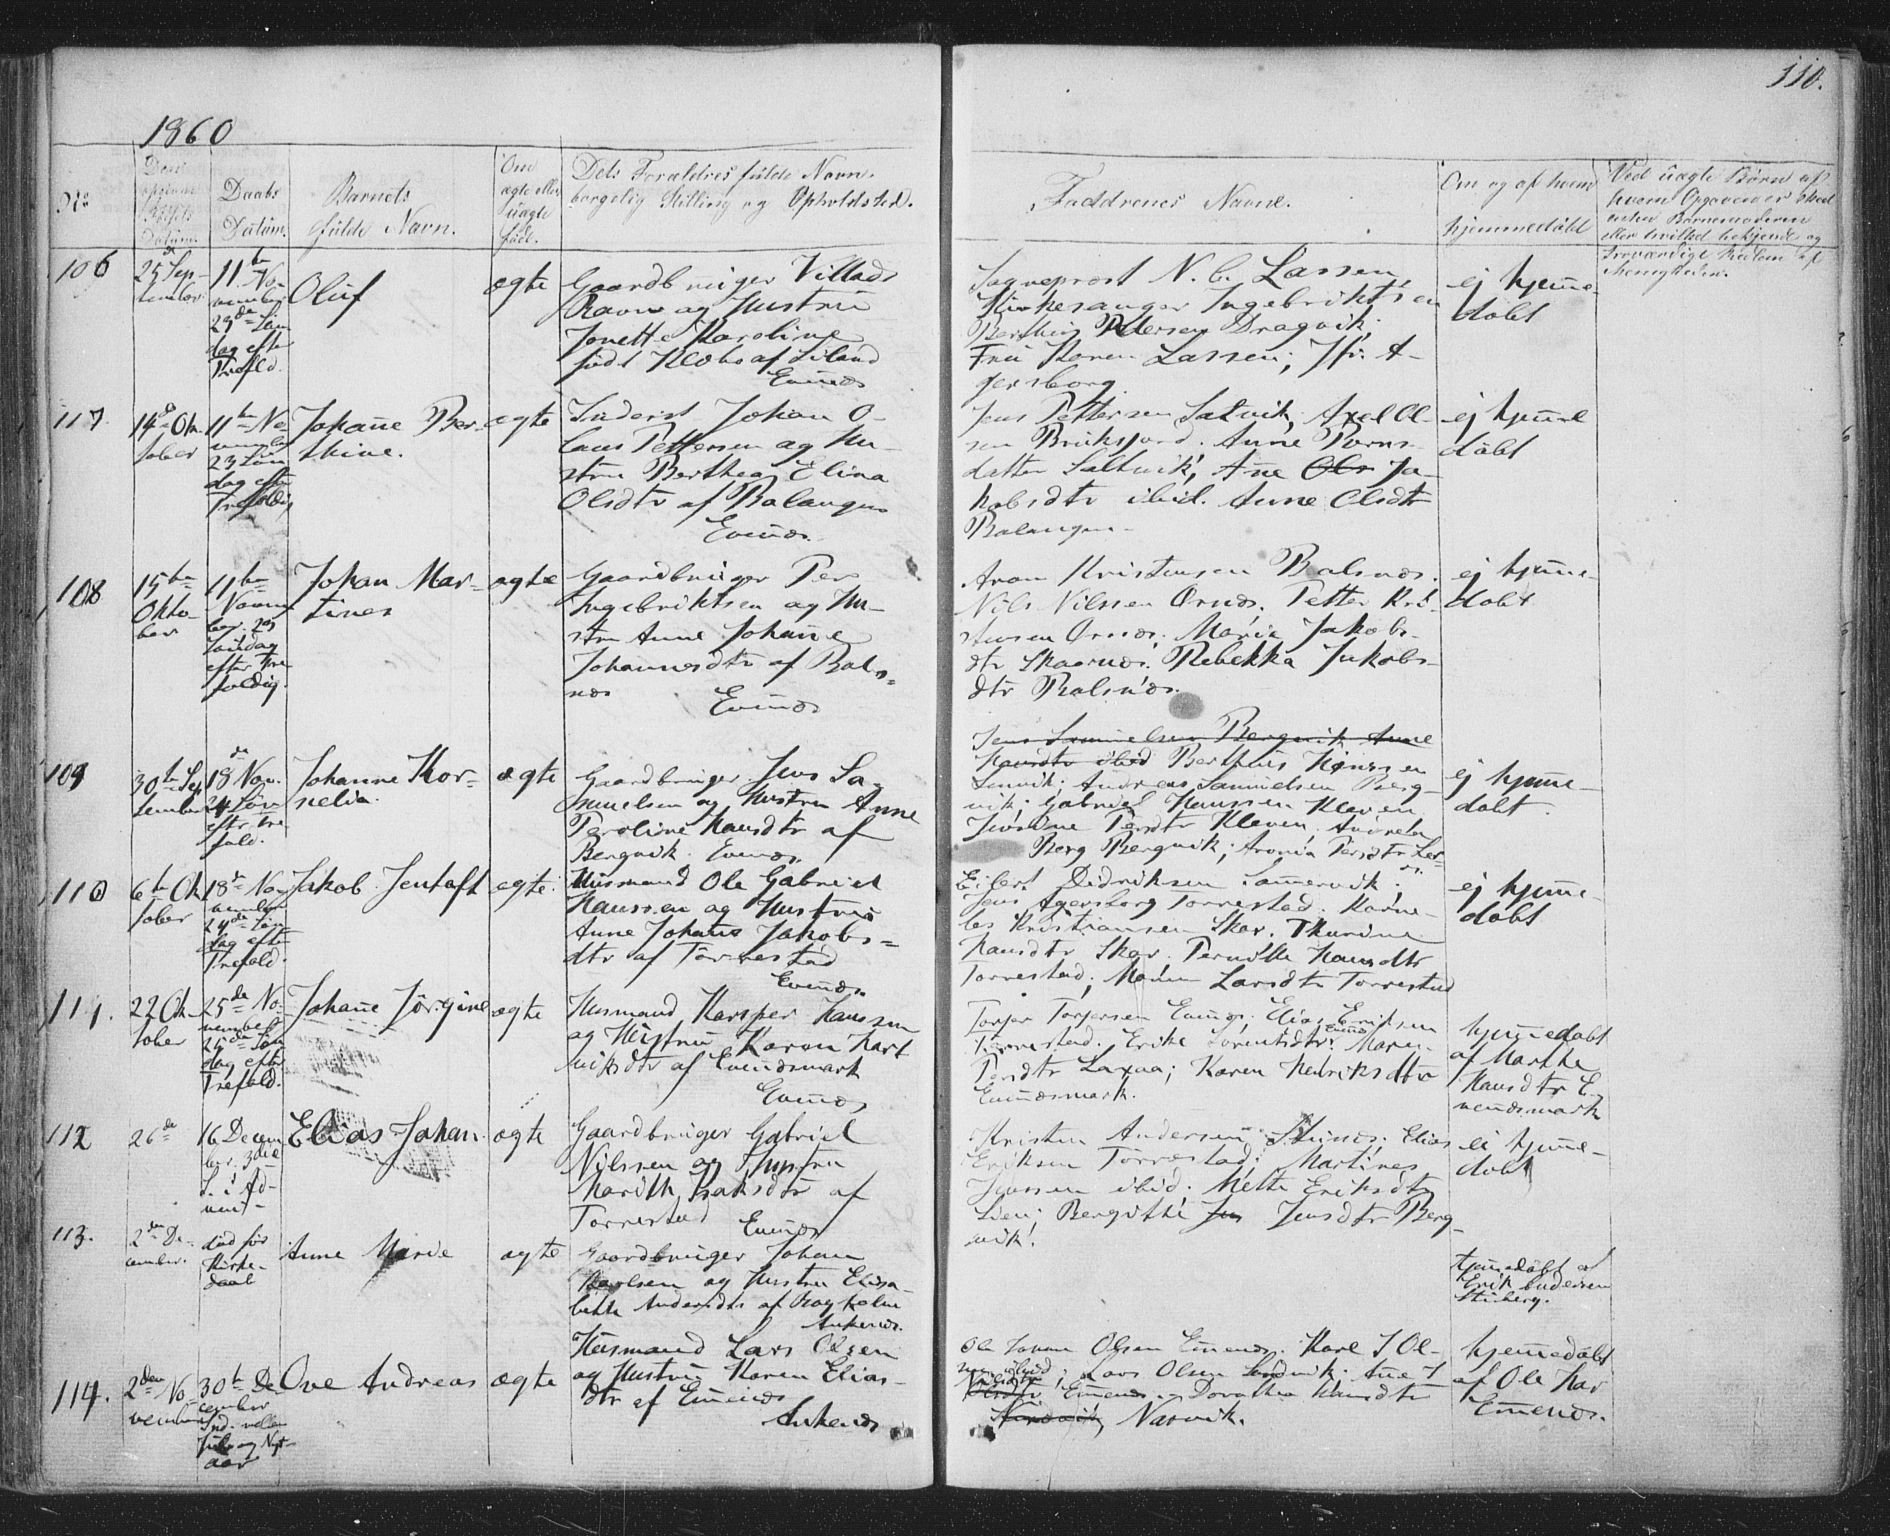 110.
1860
No
Daabs
Datum.
Barnets
fulde Navn.
Om
ægte eller
uægte
født.
Dets Forældres fulde Navn,
borgelig Stilling og Opholdsted.
Faddrenes Navne.
Om og af hvem
hjemmedøbt
Ved uægte Børn af
hvem Opgaven er skeet
enten Barnemoderen
eller hvilket bekjendt og
troværdige Medlem af
Menigheden.
106
25 Sep-
tember
11te No-
vember
23de Søn
dag efter
Trefold.
Oluf
ægte
Gaardbruger Villads
Ravn og Hustru
Jonette Karoline
født Klæbo af Liland
Evenæs
Sogneprest N. C. Lassen,
Kirkesanger Ingebriktsen
Pedersen Dragvik;
Fru Karen Lassen; Jfr. A-
gersborg
ej hjemme-
døbt
117
14de Ok-
tober
11te No-
vember
23 Søn
dag efter
Trefoldig
Johanne Ber-
thine.
ægte
Inderst Johan O-
laus Pettersen og Hu-
stru Berthea Elina
Olsdtr af Balangen
Evenæs.
Jens Pettersen Saltvik, Axel Ol-
sen Boriksjord. Anne
datter Saltvik, Ane Ols Ja-
kobsdtr ibid. Anne Olsdtr
Balangen.
ej hjemme
døbt
108
15te
Okto-
ber
11te
Novem
ber. 23
Søndag
efter Tre
foldig.
Johan Mar-
tines
ægte
Gaardbruger Per
Ingebriktsen og Hu-
stru Anne Johanne
Johannesdtr af Bals-
næs
Evenæs
Aron Kristensen Balsnæs.
Nils Nilssen Ornæs. Petter Kri-
stensen Ornæs. Maria Jakobs-
dtr Skaarnæs. Rebekka Jakobs-
dtr Balsnæs.
ej hjemme-
døbt
109
30te Sep
tember
18de Nov.
24 Søn
efter Tre
fold.
Johanne Kor-
nelia.
ægte
Gaardbruger Jens Sa-
muelsen og Hustru Anne
Peroline Hansdtr af
Bergvik. Evenæs.
Jens Samuelsen Bergvik Anne
Hansdtr ibid Berthius Hansen
Andreas Samuelsen Berg-
vik; Gabriel Hanssen Kleven
Persdtr Kleven
Berg Bergvik; Aronia Persdtr
ej hjemme-
døbt.
110
6te Ok-
tober
18de No-
vember
24de Søn
dag efter
Trefold.
Jakob Jentoft
ægte.
Husmand Ole Gabriel
Hanssen og Hustru
Anne Johana Jakobs-
dtr af Tørrestad
Evenæs.
Eilert Didriksen
Jens Agersborg Torrestad. Korne-
les Kristiansen Skar. Thurine
Hansdtr Skar. Pernille Hansdtr
Torrestad; Maren Larsdtr Torrestad
ej hjemme-
døbt
111.
22 Ok-
tober
25de No-
vember
25de Søn
dag efter
Trefold.
Johanne Jørgine
ægte
Husmand Kasper Hanssen
og Hustru Karen Hart
viksdtr af Evenæsmark
Evenæs
Torger Torgersen Evenæs; Elias Eriksen
Tørrestad. Erike Lorentsdtr Evenæs. Maren
Persdtr Laxaa; Karen Hendriksdtr
Evenæsmark.
hjemmedøbt
af Marthe
Hansdtr E-
venæsmark
112
26de
16 Decem
ber. 3die
S. i Ad-
vent.
Elias Johan
ægte
Gaardbruger Gabriel
Nilssen og Hustru
af
Torrestad
Evenæs
Kristen Andersen Elias
Eriksen Torrestad. Martines
Jenssen ibid. Mette Eriksdtr
Lien; Bergitthe Jen Jensdtr Berg-
vik.
ej hjemme-
døbt
113.
2den De-
cember.
død før
Kirke-
daab
Anne Marie
ægte
Gaardbruger Johan
Karlsen og Hustru Elisa
beth Andersdtr af
Ankenæs.
hjemedøbt af
Erik Andersen
114.
2den No-
vember
30te De-
cember
Snd. mellem
Jul og Nyt-
aar
Ove Andreas
ægte
Husmand Lars Olsen
og Hustru Karen Elias-
dtr af Emenæs
Ankenæs
Ole Johan Olsen Emenæs. Karl J Ol-
sen ibid; Lars Olsen
Emenæs og Dorothea Hansdtr
Narvik.
hjemmedøbt
af Ole Kar
Emenæs.